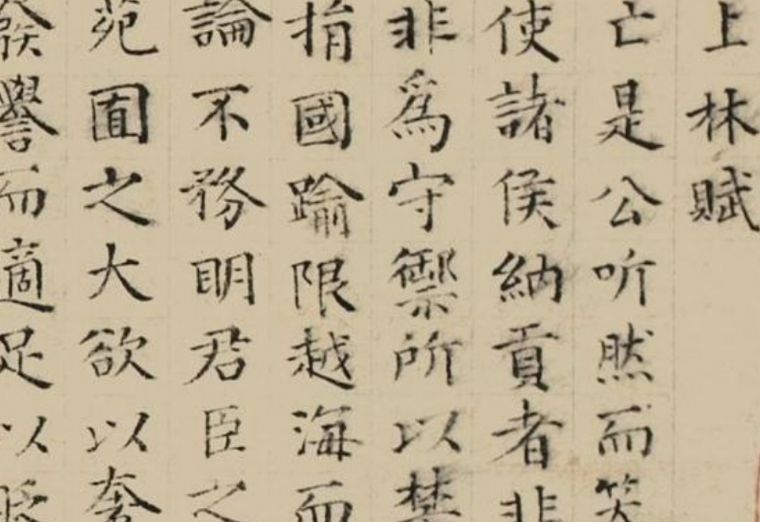 上林賦
亡是公听然而笑
使諸侯納貢者非
非為守禦所以禁
捐國踰限越海而
論不務明君臣之
苑囿之大欲以奢
譽而適足以